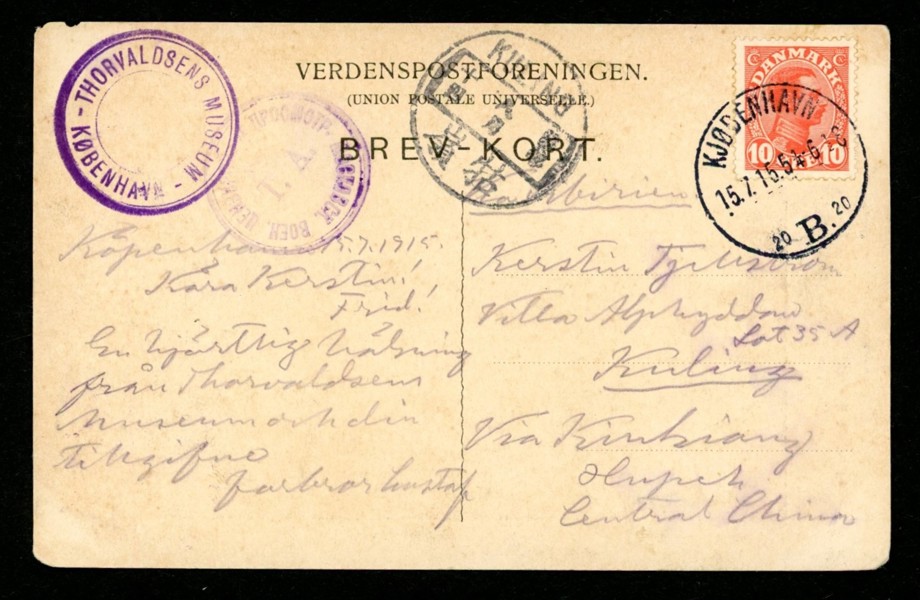 VERDENSPOSTFORENINGEN.
(UNION POSTALE UNIVERSELLE.)
BREV-KORT.
- THORVALDSENS MUSEUM -
KØBENHAVN
DANMARK
10 10
KJØBENHAVN
15.7.15.
20 B. 20
Köpenhamn 15.7.1915.
Kära Kerstin!
Frid!
En hjärtlig hälsning
från Thorvaldsens
Museum och din
tillgifne
farbror Gustaf
Via Sibirien
Kerstin Tjellström
Villa Alphyddan
Lot 35 A
Kuling
Via Kiukiang
Hupeh
Central China